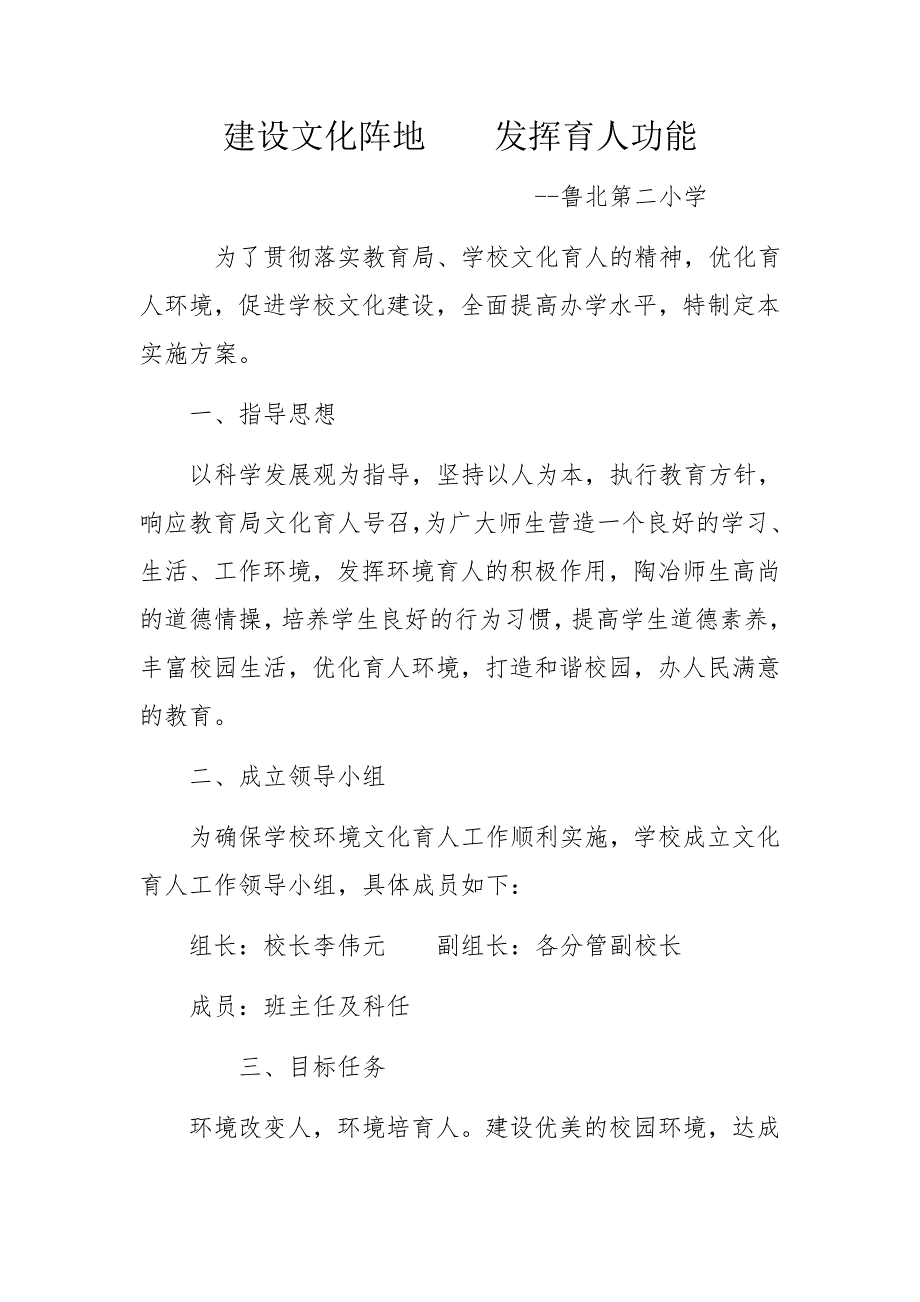 建设文化阵地　　发挥育人功能
--鲁北第二小学
为了贯彻落实教育局、学校文化育人的精神，优化育
人环境，促进学校文化建设，全面提高办学水平，特制定本
实施方案。
一、指导思想
以科学发展观为指导，坚持以人为本，执行教育方针，
响应教育局文化育人号召，为广大师生营造一个良好的学习、
生活、工作环境，发挥环境育人的积极作用，陶冶师生高尚
的道德情操，培养学生良好的行为习惯，提高学生道德素养，
丰富校园生活，优化育人环境，打造和谐校园，办人民满意
的教育。
二、成立领导小组
为确保学校环境文化育人工作顺利实施，学校成立文化
育人工作领导小组，具体成员如下：
组长：校长李伟元　　副组长：各分管副校长
成员：班主任及科任
三、目标任务
环境改变人，环境培育人。建设优美的校园环境，达成